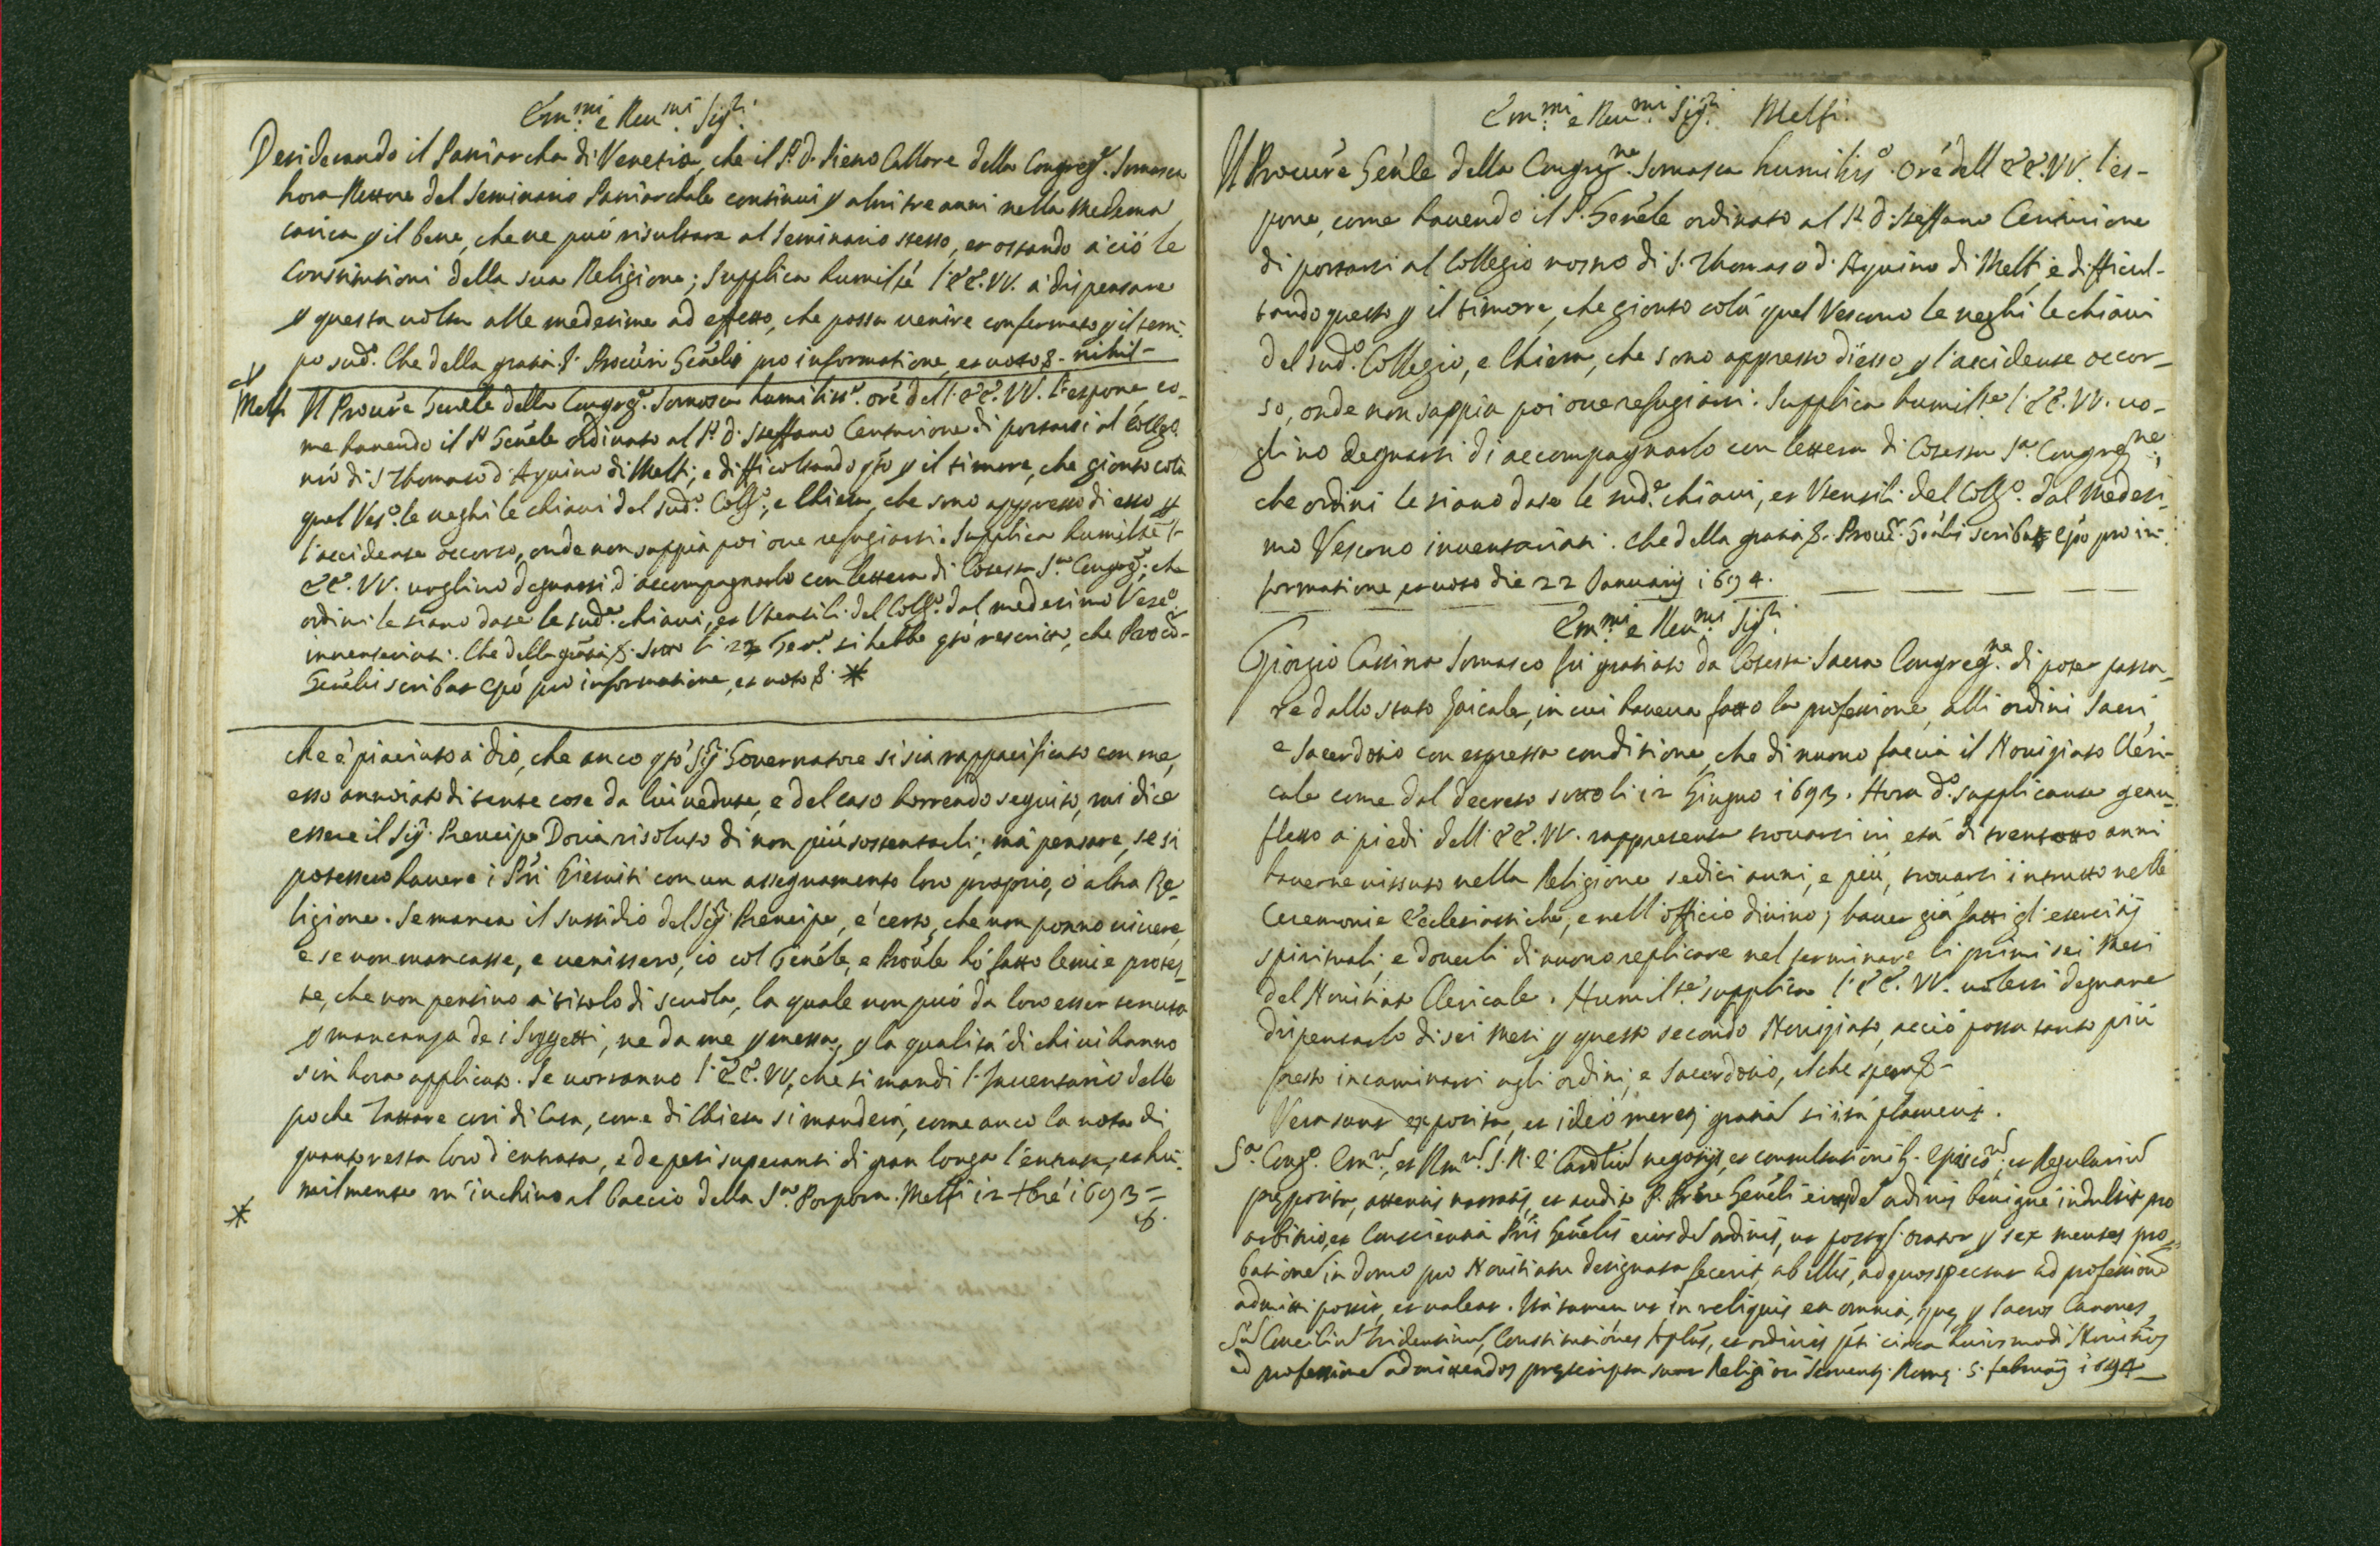 Em.mi e Reu.mi Sig.ri
Desiderando il Patriarcha di Venetia, che il P. D. Piero Callore della Congreg.e Somasca
hora Rettore del Seminario Patriarchale continui p altri tre anni nella medema
carica p il bene, che ne può risultare al Seminario stesso, et ostando a ciò le
Constitutioni della sua Religione; Supplica humilte l'EE.VV. à dispensare
p questa uolta alle medesime ad effetto, che possa uenire confermato p il tem-
po sud.o Che della gratia &. Procuri Genelis pro informatione, et uoto &. nihil-
Melfi Il Procure Genele della Congreg.e Somasca humiliss.o ore dell'EE.VV. l'espone, co-
me hauendo il P Genele ordinato al P. D. Steffano Centurione di portarsi al Colleg.o
nro di S Thomaso d'Aquino di Melfi; e difficoltando qto p il timore, che gionto colà
quel Ves.o le neghi le chiaui del sud.o Coll.o, e Chiesa, che sono appresso di esso p
l'accidente occorso, onde non sappia poi oue refugiarsi. Supplica humilte l'
EE.VV. uoglino degnarsi d'accompagnarlo con lettera di Cotesta S.a Congreg.e, che
ordini le siano date le sud.e chiaui, et Vtensili del Coll.o dal medesimo Vesc.o
inuentariati. Che della gratia &. Sotto li 22 Gen.o si hebbe qto rescritto, che Procu-
Genelis scribat Epo pro informatione, et uoto &. *
che è piaciuto à dio, che anco qto Sig. Gouernatore si sia rappacificato con me,
esso annoiato di tante cose da lui uedute, e del caso horrendo seguito, mi dice
essere il Sig. Prencipe Doria risoluto di non più sostentarli; mà pensare, se si
potessero hauere i Pri Giesuiti con un assegnamento loro proprio, ò altra Re-
ligione. Se manca il sussidio del Sig. Prencipe, è certo, che non ponno uiuere,
e se non mancasse, e uenissero, io col Genele, e Proule hò fatto le mie protes-
te, che non pensino à titolo di scuola, la quale non può da loro esser tenuta
p mancanza de i Soggetti, ne da me pmessa, p la qualità di chi ui hanno
sin hora applicato. Se uorranno l'EE.VV, che si mandi l'Inuentario delle
poche tattare così di Casa, come di Chiesa si manderà, come anco la nota di
quanto resta loro d'entrata, e de pesi superanti di gran longa l'entrata, et hu-
milmente m'inchino al baccio della S.a Porpora. Melfi 12 xbre 1693 =
* &.
Em.mi e Reu.mi Sig.ri Melfi.
Il Procure Genle della Congreg.ne Somasca humiliss.o ore dell EE.VV. l'es-
pone, come hauendo il P. Genele ordinato al P. D. Steffano Centurione
di portarsi al Collegio nostro di S. Thomaso d'Aquino di Melfi, e difficul-
tando questo p il timore, che gionto colà quel Vescouo le neghi le chiaui
del sud.o Collegio, e Chiesa, che sono appresso d'esso p l'accidente occor-
so, onde non sappia poi oue refugiarsi. Supplica humilte l'EE.VV. uo-
glino degnarsi di accompagnarlo con lettera di Cotesta S.a Congreg.ne,
che ordini le siano date le sud.e chiaui, et Vtensili del Coll.o dal Medesi-
mo Vescouo inuentariati. Che della gratia &. Procur. Genlis scribat Epo pro in-
formatione, et uoto die 22 Januarij 1694.
Em.mi e Reu.mi Sig.ri
Giorgio Cassina Somasco fù gratiato da Cotesta Sacra Congreg.ne di poter passa-
re dallo stato laicale, in cui haueua fatto la professione, alli ordini Sacri,
e Sacerdotio con espressa conditione, che di nuouo faccia il Nouiziato Cleri-
cale come dal decreto sotto li 12 Giugno 1693. Hora d.o supplicante genu-
flesso à piedi dell'EE.VV. rappresenta trouarsi in età di trentotto anni
hauerne uissuto nella Religione sedici anni, e più, trouarsi instrutto nelle
Ceremonie Ecclesiastiche, e nell'officio diuino; hauer già fatti gl'esercitij
spirituali, e douerli di nuouo replicare nel terminare li primi sei Mesi
del Nouitiato Clericale. Humil.te supplica l'EE.VV. uolersi degnare
dispensarlo di sei Mesi p questo secondo Nouiziato, acciò possa tanto più
presto incaminarsi agli ordini, e Sacerdotio, il che spera &-
Vera sunt exposita, et ideò mereri gratia si ità placuerit.
S.a Cong.o Em., et Rm. S.R.E. Cardliu negotijs, et consultationib. Episco, et Regulariu
preposita, attentis narratis, et audito P. Prore Geneli eiusde ordinis benigne indulsit pro
arbitrio, et Conscientia Pris Genelis eiusde ordinis, ut postq. orator p sex menses pro-
batione in domo pro Nouitiatu designata fecerit, ab illis, ad quos spectat ad professione
admitti possit, et ualeat. Ità tamen ut in reliquis et omnia, que p Sacros Canones,
Su Conciliu Tridentinu, Constitutiones Aplas, et ordinis pti circa huiusmodi Nouitios
ad professione admittendos prescripta sunt Religiosi seruent. Rome 5 februarij 1694